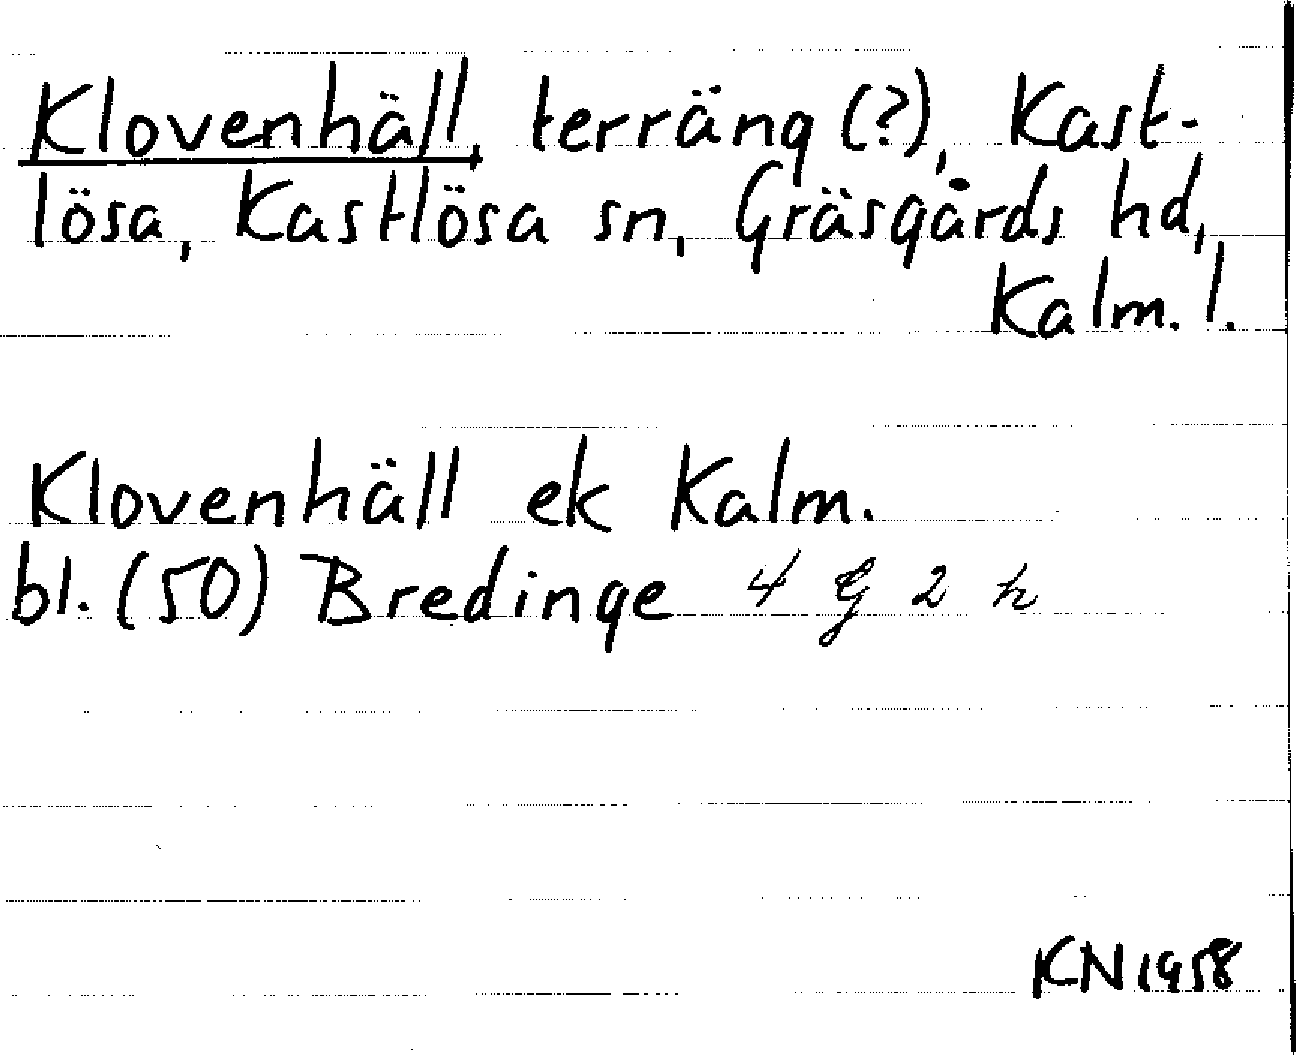 Klovenhäll, terräng (?), Kast-
lösa, Kastlösa sn, Gräsgårds hd,
Kalm. l.
Klovenhäll ek Kalm.
bl. (50) Bredinge 4 G 2 h
KN 1958